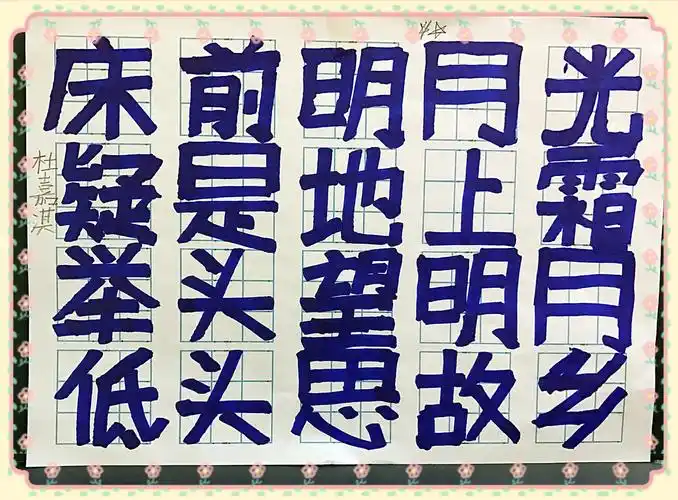 床前明月光
疑是地上霜
举头望明月
低头思故乡
杜嘉淇